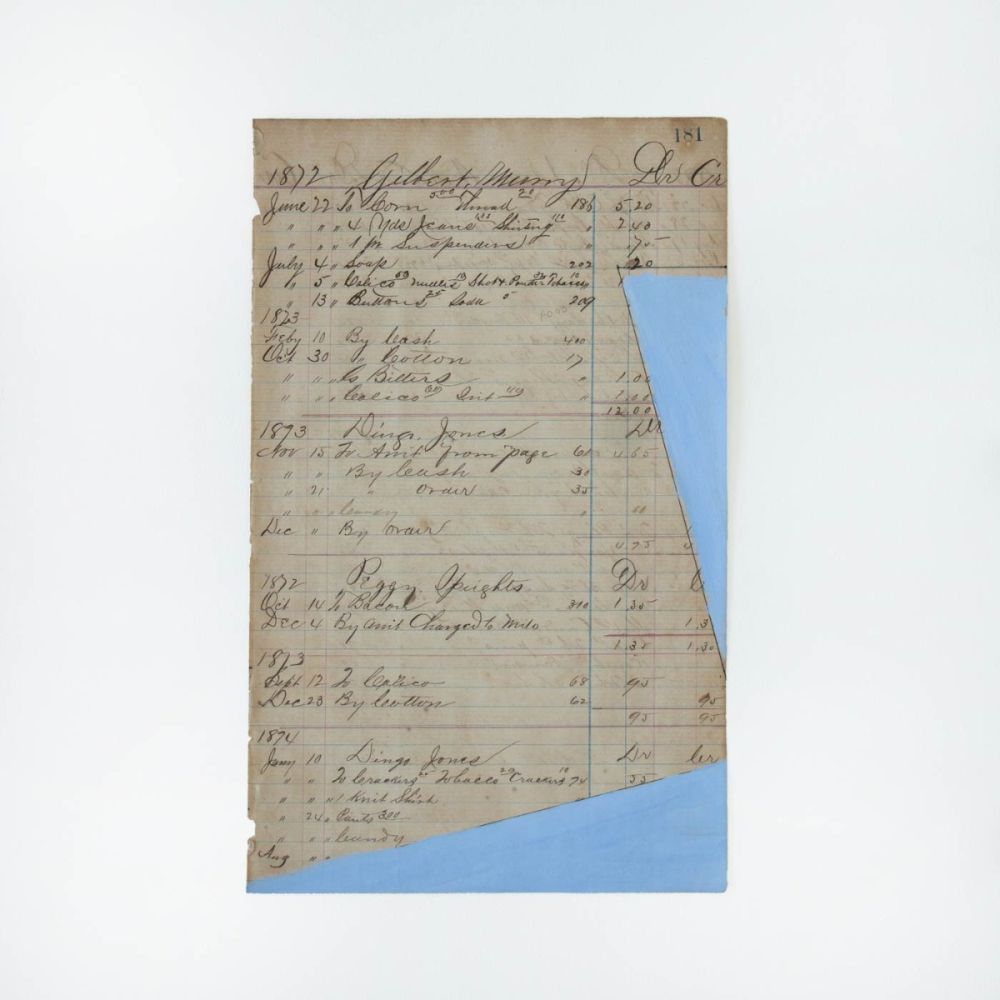 181
1872 Gilbert, Murry Dr Cr
June 22 To Corn 500 Thread 20 186 5 20
" " " 4 Yds Jeans Shirting " 2 40
" " " 1 pr Suspenders " .75
July 4 " Soap 202 20
" 5 " Calico Shot
" 13 " Buttons 25 Soda 5 209
1873
Feby 10 By Cash 400
Oct 30 " Cotton 17
" " " Bitters " 1.00
" " " Calico "
12.00
1873 Dingo, Jones Dr
Nov 15 To Amt from page 61 4 65
" " By Cash 31
" 21 " Order 35
" " " Candy "
Dec " By Order
4 75 4
1872 Peggy, Dr
Oct 14 To Bacon 310 1.35
Dec 4 By Amt Charged to Milo 1.3
1.35 1.30
1873
Sept 12 To Calico 68 95
Dec 23 By Cotton 62 95
95 95
1874
Jany 10 Dingo Jones Dr Cr
" " To Crackers Tobacco 20 Crackers 10 74 55
" " " 1 Knit Shirt
" 24 " Pants 300
" " " Candy
Aug " "